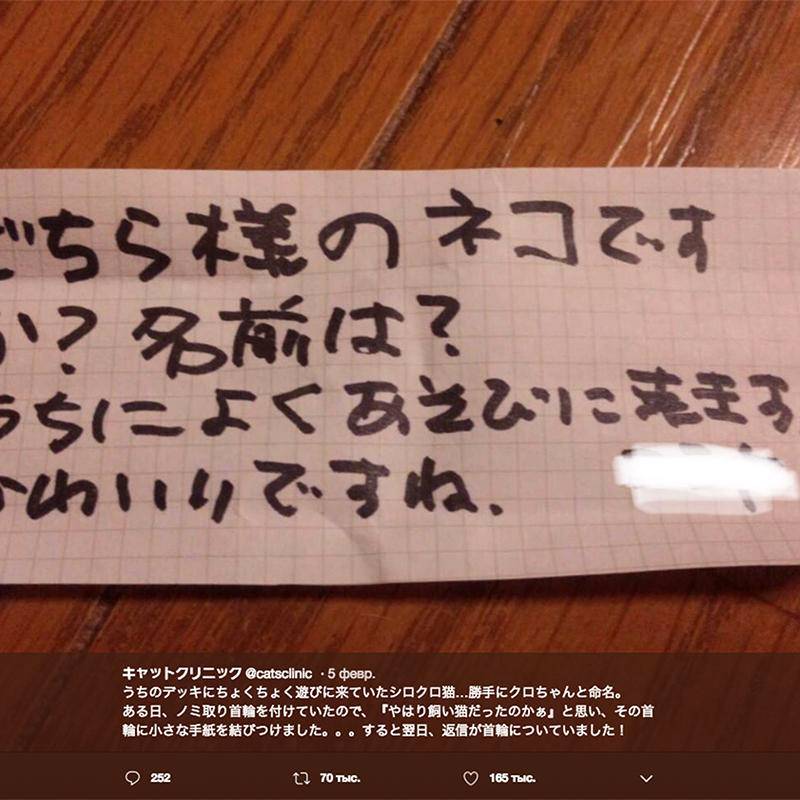 どちら様のネコです
か?名前は?
うちによくあそびに来ます
かわいいですね.
キャットクリニック @catsclinic · 5 февр.
うちのデッキにちょくちょく遊びに来ていたシロクロ猫…勝手にクロちゃんと命名。
ある日、ノミ取り首輪を付けていたので、『やはり飼い猫だったのかぁ』と思い、その首
輪に小さな手紙を結びつけました。。。すると翌日、返信が首輪についていました！
252 70 тыс. 165 тыс.